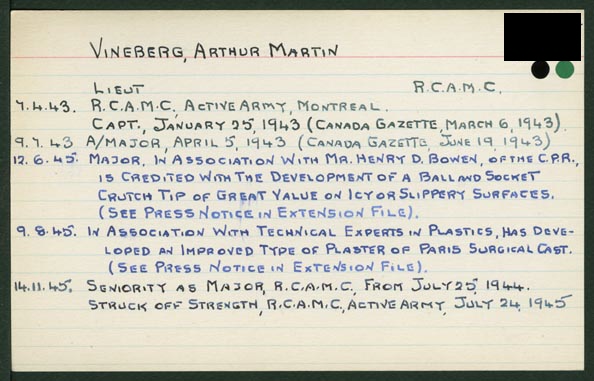 VINEBERG, ARTHUR MARTIN
LIEUT R.C.A.M.C.
7.4.43. R.C.A.M.C., ACTIVE ARMY, MONTREAL.
CAPT., JANUARY 25, 1943 (CANADA GAZETTE, MARCH 6, 1943).
9.7.43 A/MAJOR, APRIL 5, 1943 (CANADA GAZETTE, JUNE 19, 1943)
12.6.45. MAJOR, IN ASSOCIATION WITH MR. HENRY D. BOWEN, OF THE C.P.R.,
IS CREDITED WITH THE DEVELOPMENT OF A BALL AND SOCKET
CRUTCH TIP OF GREAT VALUE ON ICY OR SLIPPERY SURFACES.
(SEE PRESS NOTICE IN EXTENSION FILE).
9.8.45. IN ASSOCIATION WITH TECHNICAL EXPERTS IN PLASTICS, HAS DEVE-
LOPED AN IMPROVED TYPE OF PLASTER OF PARIS SURGICAL CAST.
(SEE PRESS NOTICE IN EXTENSION FILE).
14.11.45. SENIORITY AS MAJOR, R.C.A.M.C., FROM JULY 25, 1944.
STRUCK OFF STRENGTH, R.C.A.M.C., ACTIVE ARMY, JULY 24, 1945